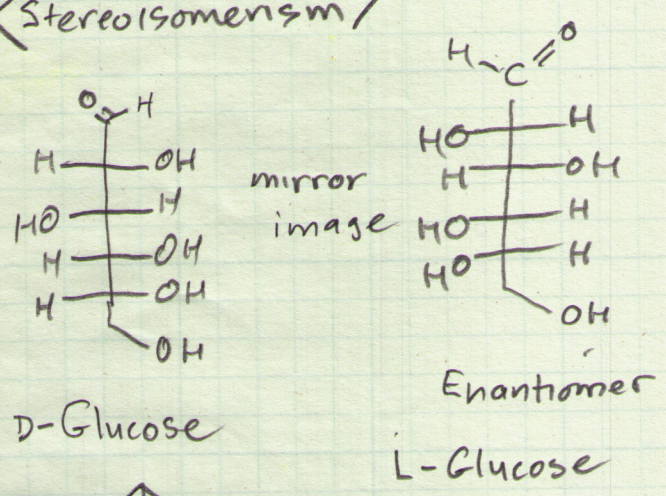 Stereoisomerism
O H
H OH
HO H
H OH
H OH
OH
D-Glucose
mirror
image
H C O
HO H
H OH
HO H
HO H
OH
Enantiomer
L-Glucose